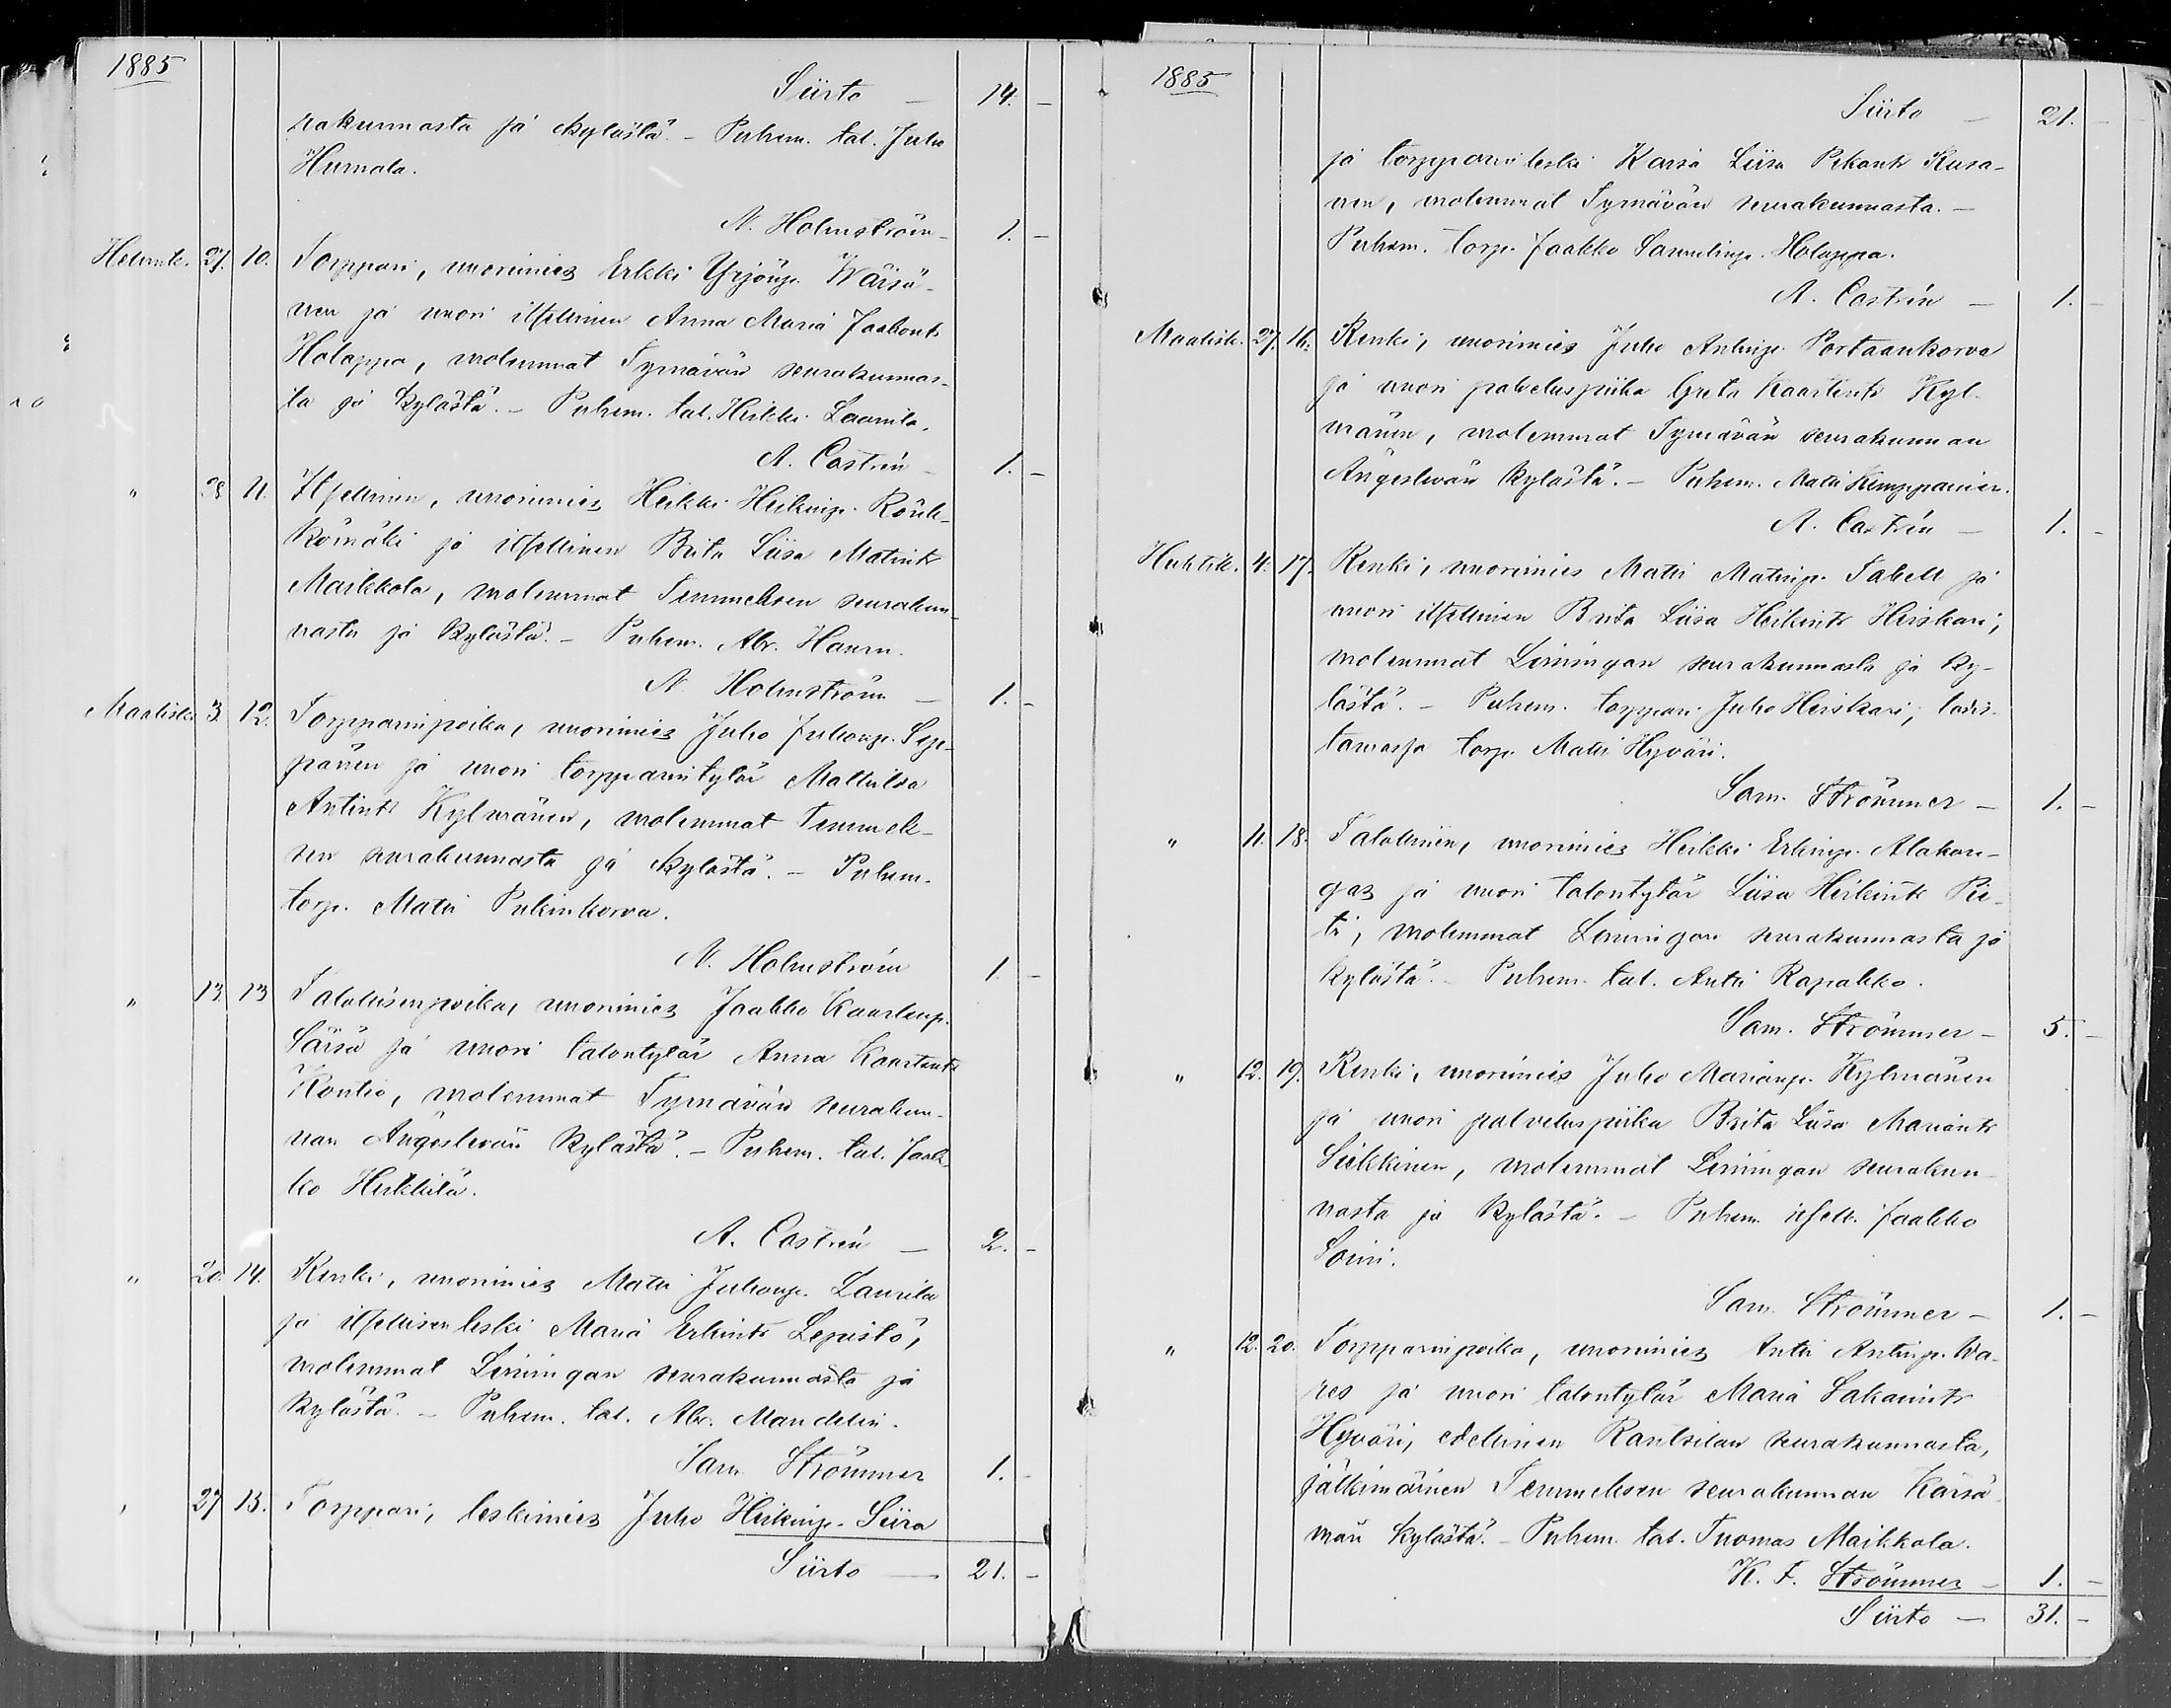 1885
Siirto — 14. —
rakunnasta ja kylästä. – Puhem. tal. Juho
Humala.
N. Holmström — 1. —
Helmik. 27. 10. Torppari, nuorimies Erkki Yrjönp. Wäisä-
nen ja nuori itsellinen Anna Maria Jaakontr
Holappa, molemmat Tyrnävän seurakunnas-
ta ja kylästä. – Puhem. tal. Heikki Laamila.
A. Castrén — 1. —
" 28 11. Itsellinen, nuorimies Heikki Heikinp.
ja itsellinen Brita Liisa Matintr
Markkola, molemmat Temmeksen seurakun-
nasta ja kylästä. – Puhem. Abr. Hannu.
N. Holmström — 1. —
Maalisk. 3. 12. Torpparinpoika, nuorimies Juho Juhonp. Sep-
pänen ja nuori torpparintytär Mathilda
Antintr Kylmänen, molemmat Temmek-
sen seurakunnasta ja kylästä. – Puhem.
torp. Matti Pukinkorva.
N. Holmström 1. —
" 13. 13 Talollisenpoika, nuorimies Jaakko Kaarlenp.
Särsä ja nuori talontytär Anna Kaarlentr
Kontio, molemmat Tyrnävän seurakun-
nan Ängeslevän kylästä. – Puhem. tal. Jaak-
ko Heikkilä.
A. Castrén — 2. —
" 20. 14. Renki, nuorimies Matti Juhonp. Laurila
ja itsellisenleski Maria Erkintr Lepistö,
molemmat Limingan seurakunnasta ja
kylästä. – Puhem. tal. Abr. Mandelin.
Sam. Strömmer 1. —
" 27 15. Torppari, leskimies Juho Heikinp. Siira
Siirto — 21. —
1885
Siirto — 21. —
ja torpparinleski Kaisa Liisa Pekantr Kusa-
nen, molemmat Tyrnävän seurakunnasta. –
Puhem. torp. Jaakko Samulinp. Holappa.
A. Castrén — 1. —
Maalisk. 27. 16. Renki, nuorimies Juho Antinp. Portaankorva
ja nuori palveluspiika Greta Kaarlentr Kyl-
mänen, molemmat Tyrnävän seurakunnan
Ängeslevän kylästä. – Puhem. Matti Kemppainen.
A. Castrén — 1. —
Huhtik. 4. 17. Renki, nuorimies Matti Matinp. Tabell ja
nuori itsellinen Brita Liisa Heikintr Hiiskari,
molemmat Limingan seurakunnasta ja ky-
lästä. – Puhem. torppari Juho Hiiskari, todis-
tamassa torp. Matti Hyväri.
Sam. Strömmer — 1. —
" 11. 18. Talollinen, nuorimies Heikki Erkinp. Alakan-
gas ja nuori talontytär Liisa Heikintr Pie-
ti, molemmat Limingan seurakunnasta ja
kylästä. – Puhem. tal. Antti Rapakko.
Sam. Strömmer — 5. —
" 12. 19. Renki, nuorimies Juho Marianp. Kylmänen
ja nuori palveluspiika Brita Liisa Mariantr
Siikkinen, molemmat Limingan seurakun-
nasta ja kylästä. – Puhem. itsell. Jaakko
Soini.
Sam. Strömmer — 1. —
" 12. 20. Torpparinpoika, nuorimies Antti Antinp. Wa-
res ja nuori talontytär Maria Sakarintr
Hyväri, edellinen Rantsilan seurakunnasta,
jälkimäinen Temmeksen seurakunnan Kärsä-
män kylästä. – Puhem. tal. Tuomas Markkola.
K. F. Strömmer — 1. —
Siirto — 31. —